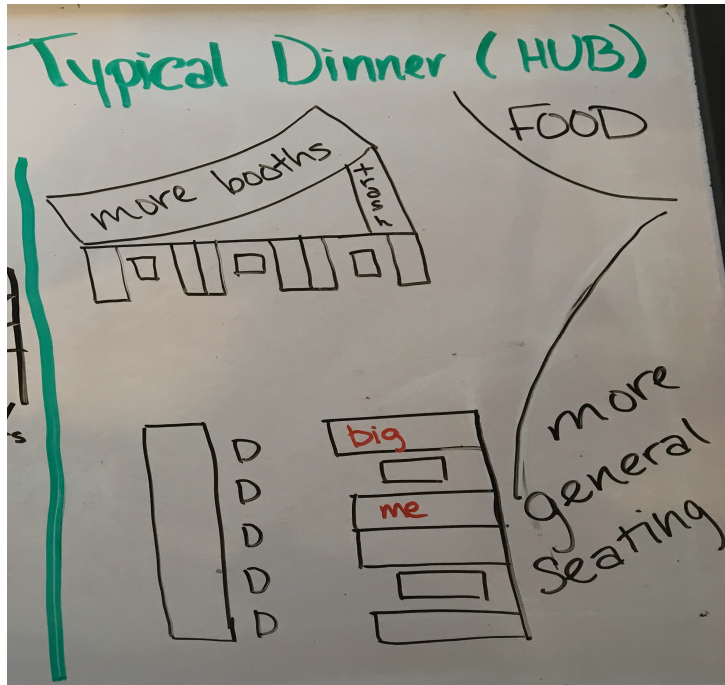 Typical Dinner (HUB)
FOOD
more booths
trash
big
me
D
D
D
D
D
more
general
seating
s